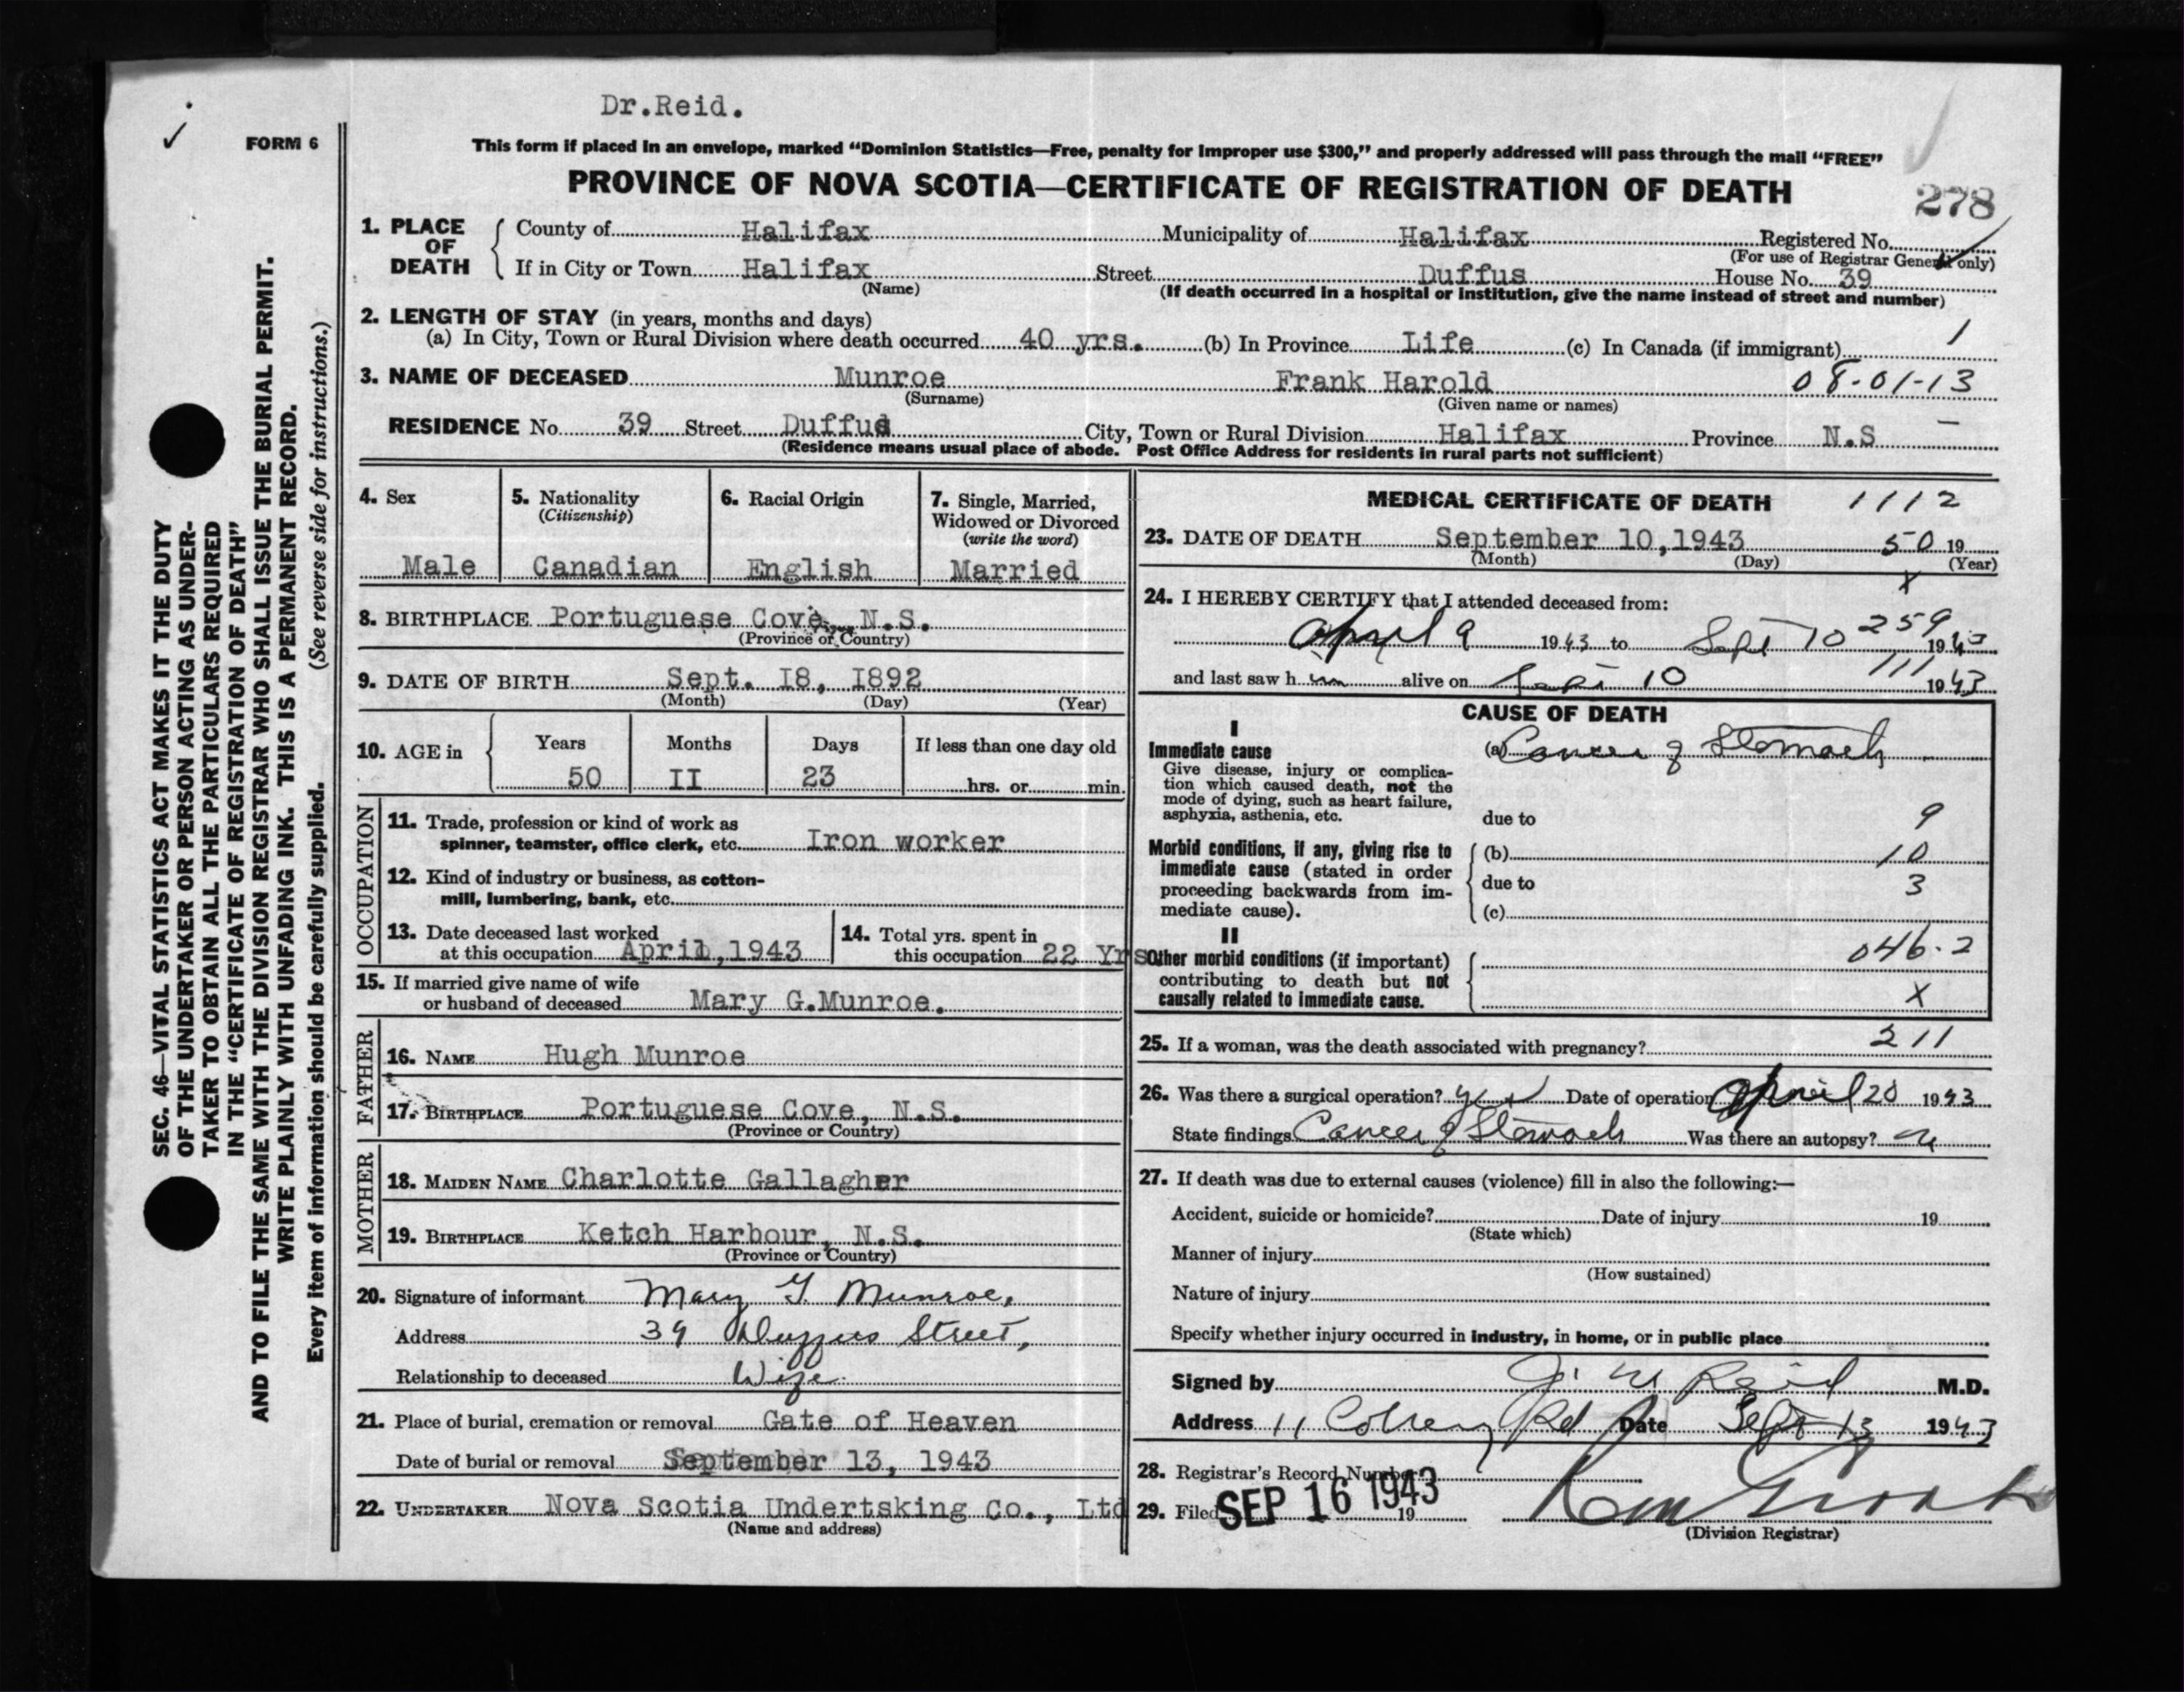 Dr.Reid.
✓ FORM 6
This form if placed in an envelope, marked "Dominion Statistics—Free, penalty for improper use $300," and properly addressed will pass through the mail "FREE"
PROVINCE OF NOVA SCOTIA—CERTIFICATE OF REGISTRATION OF DEATH
278
1. PLACE OF DEATH
County of Halifax Municipality of Halifax Registered No.
(For use of Registrar General only)
If in City or Town Halifax Street Duffus House No. 39
(Name) (If death occurred in a hospital or institution, give the name instead of street and number)
2. LENGTH OF STAY (in years, months and days)
(a) In City, Town or Rural Division where death occurred 40 yrs. (b) In Province Life (c) In Canada (if immigrant) 1
3. NAME OF DECEASED Munroe Frank Harold 08-01-13
(Surname) (Given name or names)
RESIDENCE No. 39 Street Duffus City, Town or Rural Division Halifax Province N.S —
(Residence means usual place of abode. Post Office Address for residents in rural parts not sufficient)
4. Sex
Male
5. Nationality
(Citizenship)
Canadian
6. Racial Origin
English
7. Single, Married,
Widowed or Divorced
(write the word)
Married
8. BIRTHPLACE Portuguese Cove, N.S.
(Province or Country)
9. DATE OF BIRTH Sept. I8, I892
(Month) (Day) (Year)
10. AGE in
Years Months Days If less than one day old
50 II 23 hrs. or min.
OCCUPATION
11. Trade, profession or kind of work as
spinner, teamster, office clerk, etc. Iron worker
12. Kind of industry or business, as cotton-
mill, lumbering, bank, etc.
13. Date deceased last worked
at this occupation April, 1943
14. Total yrs. spent in
this occupation 22 Yrs
15. If married give name of wife
or husband of deceased Mary G.Munroe.
FATHER
16. NAME Hugh Munroe
17. BIRTHPLACE Portuguese Cove, N.S.
(Province or Country)
MOTHER
18. MAIDEN NAME Charlotte Gallagher
19. BIRTHPLACE Ketch Harbour, N.S.
(Province or Country)
20. Signature of informant Mary G. Munroe,
Address 39 Duffus Street,
Relationship to deceased Wife.
21. Place of burial, cremation or removal Gate of Heaven
Date of burial or removal September 13, 1943
22. UNDERTAKER Nova Scotia Undertsking Co., Ltd
(Name and address)
MEDICAL CERTIFICATE OF DEATH 1112
23. DATE OF DEATH September 10,1943 50 19
(Month) (Day) (Year)
X
24. I HEREBY CERTIFY that I attended deceased from:
April 9 1943 to Sept 10 259 1943
and last saw h im alive on Sept 10 111 1943
CAUSE OF DEATH
I
Immediate cause (a) Cancer of Stomach
Give disease, injury or complica-
tion which caused death, not the
mode of dying, such as heart failure,
asphyxia, asthenia, etc.
due to 9
Morbid conditions, if any, giving rise to
immediate cause (stated in order
proceeding backwards from im-
mediate cause).
(b) 10
due to 3
(c)
II
Other morbid conditions (if important)
contributing to death but not
causally related to immediate cause.
046.2
X
211
25. If a woman, was the death associated with pregnancy?
26. Was there a surgical operation? yes Date of operation April 20 1943
State findings Cancer of Stomach Was there an autopsy? no
27. If death was due to external causes (violence) fill in also the following:—
Accident, suicide or homicide? Date of injury 19
(State which)
Manner of injury
(How sustained)
Nature of injury
Specify whether injury occurred in industry, in home, or in public place
Signed by Reid M.D.
Address 11 Coburg Rd Date Sept 13 1943
28. Registrar's Record Number
29. Filed SEP 16 1943 19
(Division Registrar)
SEC. 46—VITAL STATISTICS ACT MAKES IT THE DUTY
OF THE UNDERTAKER OR PERSON ACTING AS UNDER-
TAKER TO OBTAIN ALL THE PARTICULARS REQUIRED
IN THE "CERTIFICATE OF REGISTRATION OF DEATH"
AND TO FILE THE SAME WITH THE DIVISION REGISTRAR WHO SHALL ISSUE THE BURIAL PERMIT.
WRITE PLAINLY WITH UNFADING INK. THIS IS A PERMANENT RECORD.
Every item of information should be carefully supplied. (See reverse side for instructions.)